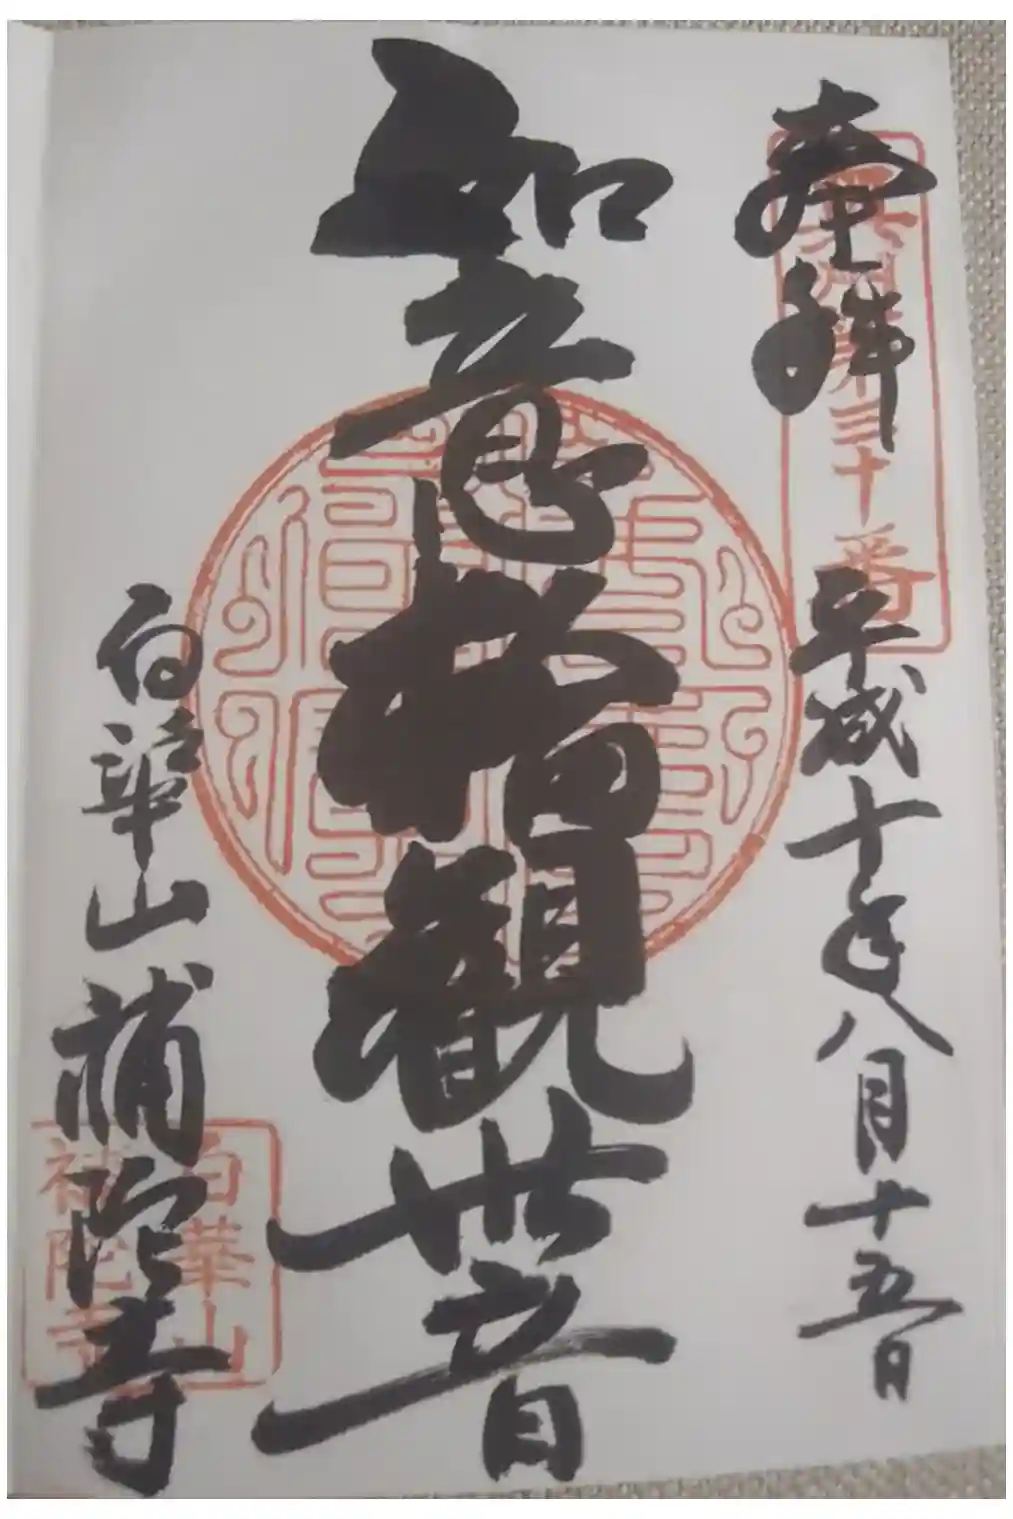 奉拝
奥州第三十番
平成十年八月十五日
如意輪観世音
白華山 補陀寺
白華山
補陀寺